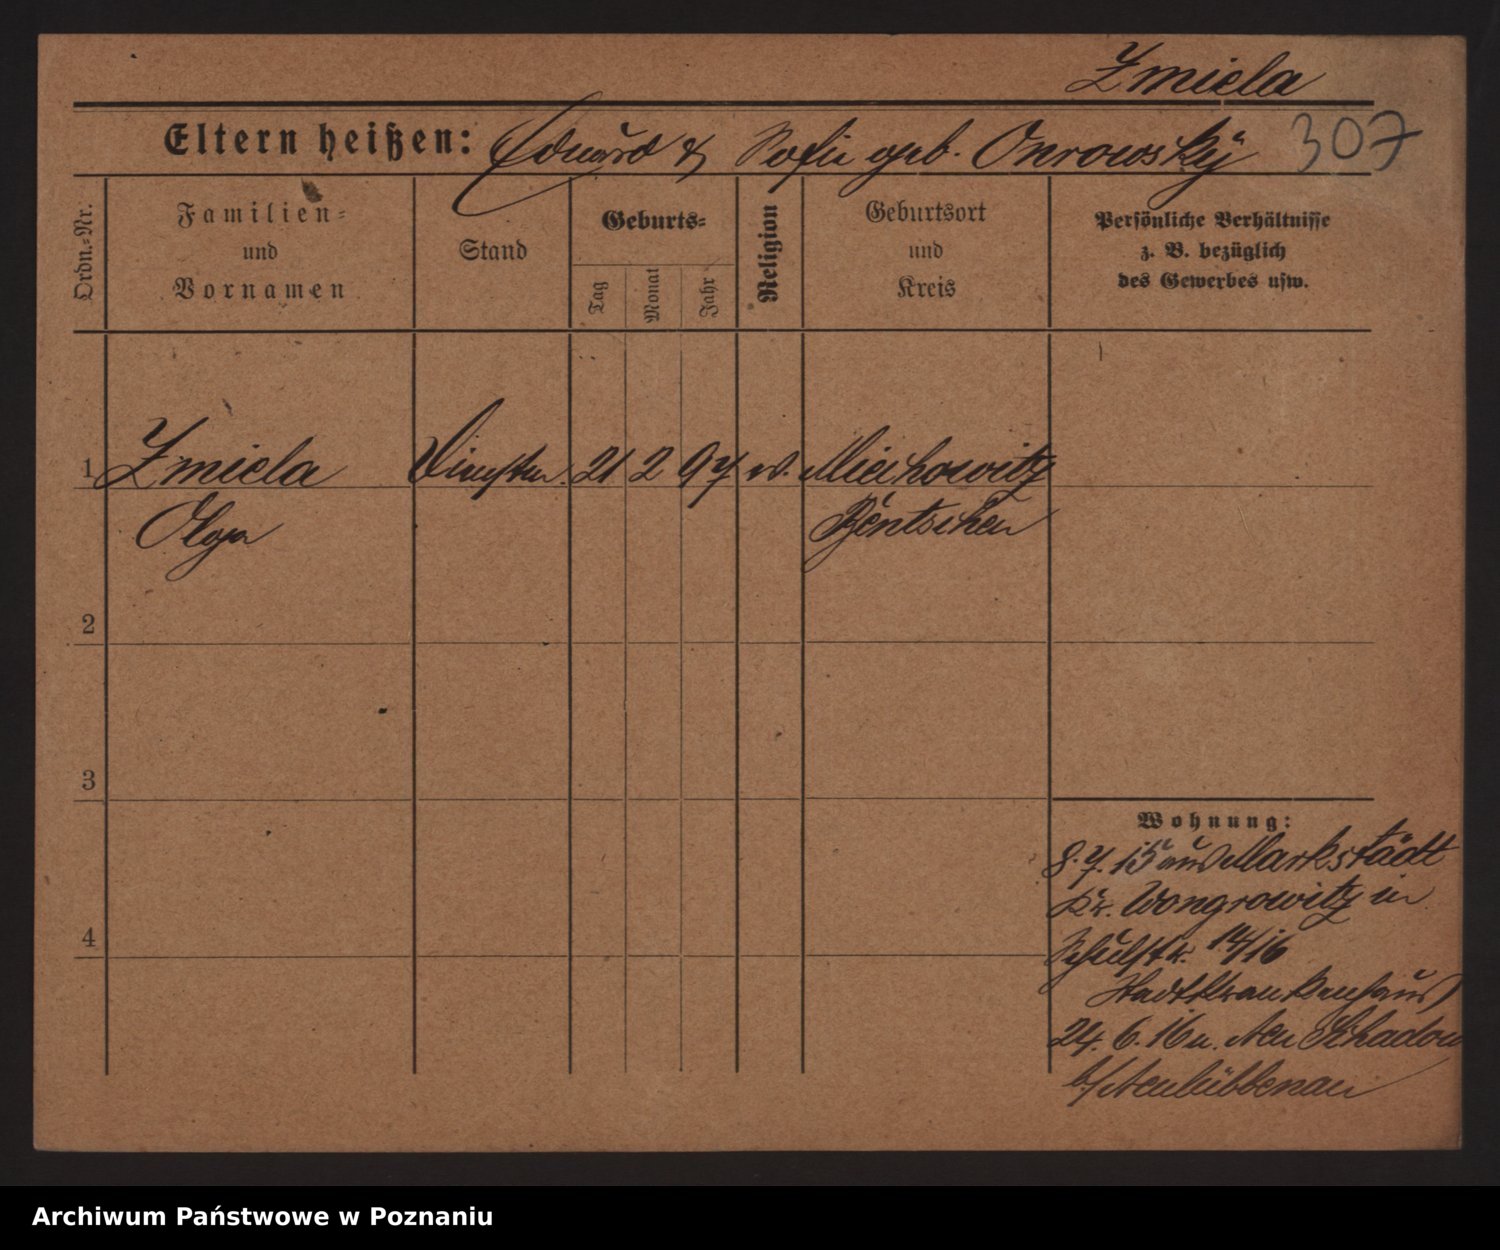 Zmiela
Eltern heißen: Eduard & Sofie geb. Onrowsky 307
Ordn.-Nr.
Familien-
und
Vornamen
Stand
Geburts-
Tag
Monat
Jahr
Religion
Geburtsort
und
Kreis
Persönliche Verhältnisse
z. B. bezüglich
des Gewerbes usw.
1 Zmiela 21 2 97 Miechowitz
Olga Bentschen
2
3
4
Wohnung:
8.7.15 aus Markstädt
Kr. Wongrowitz in
Schulstr. 14/16
Stadtkrankenhaus
24.6.16 n. Neu Schadow
b/Neulübbenau
Archiwum Państwowe w Poznaniu